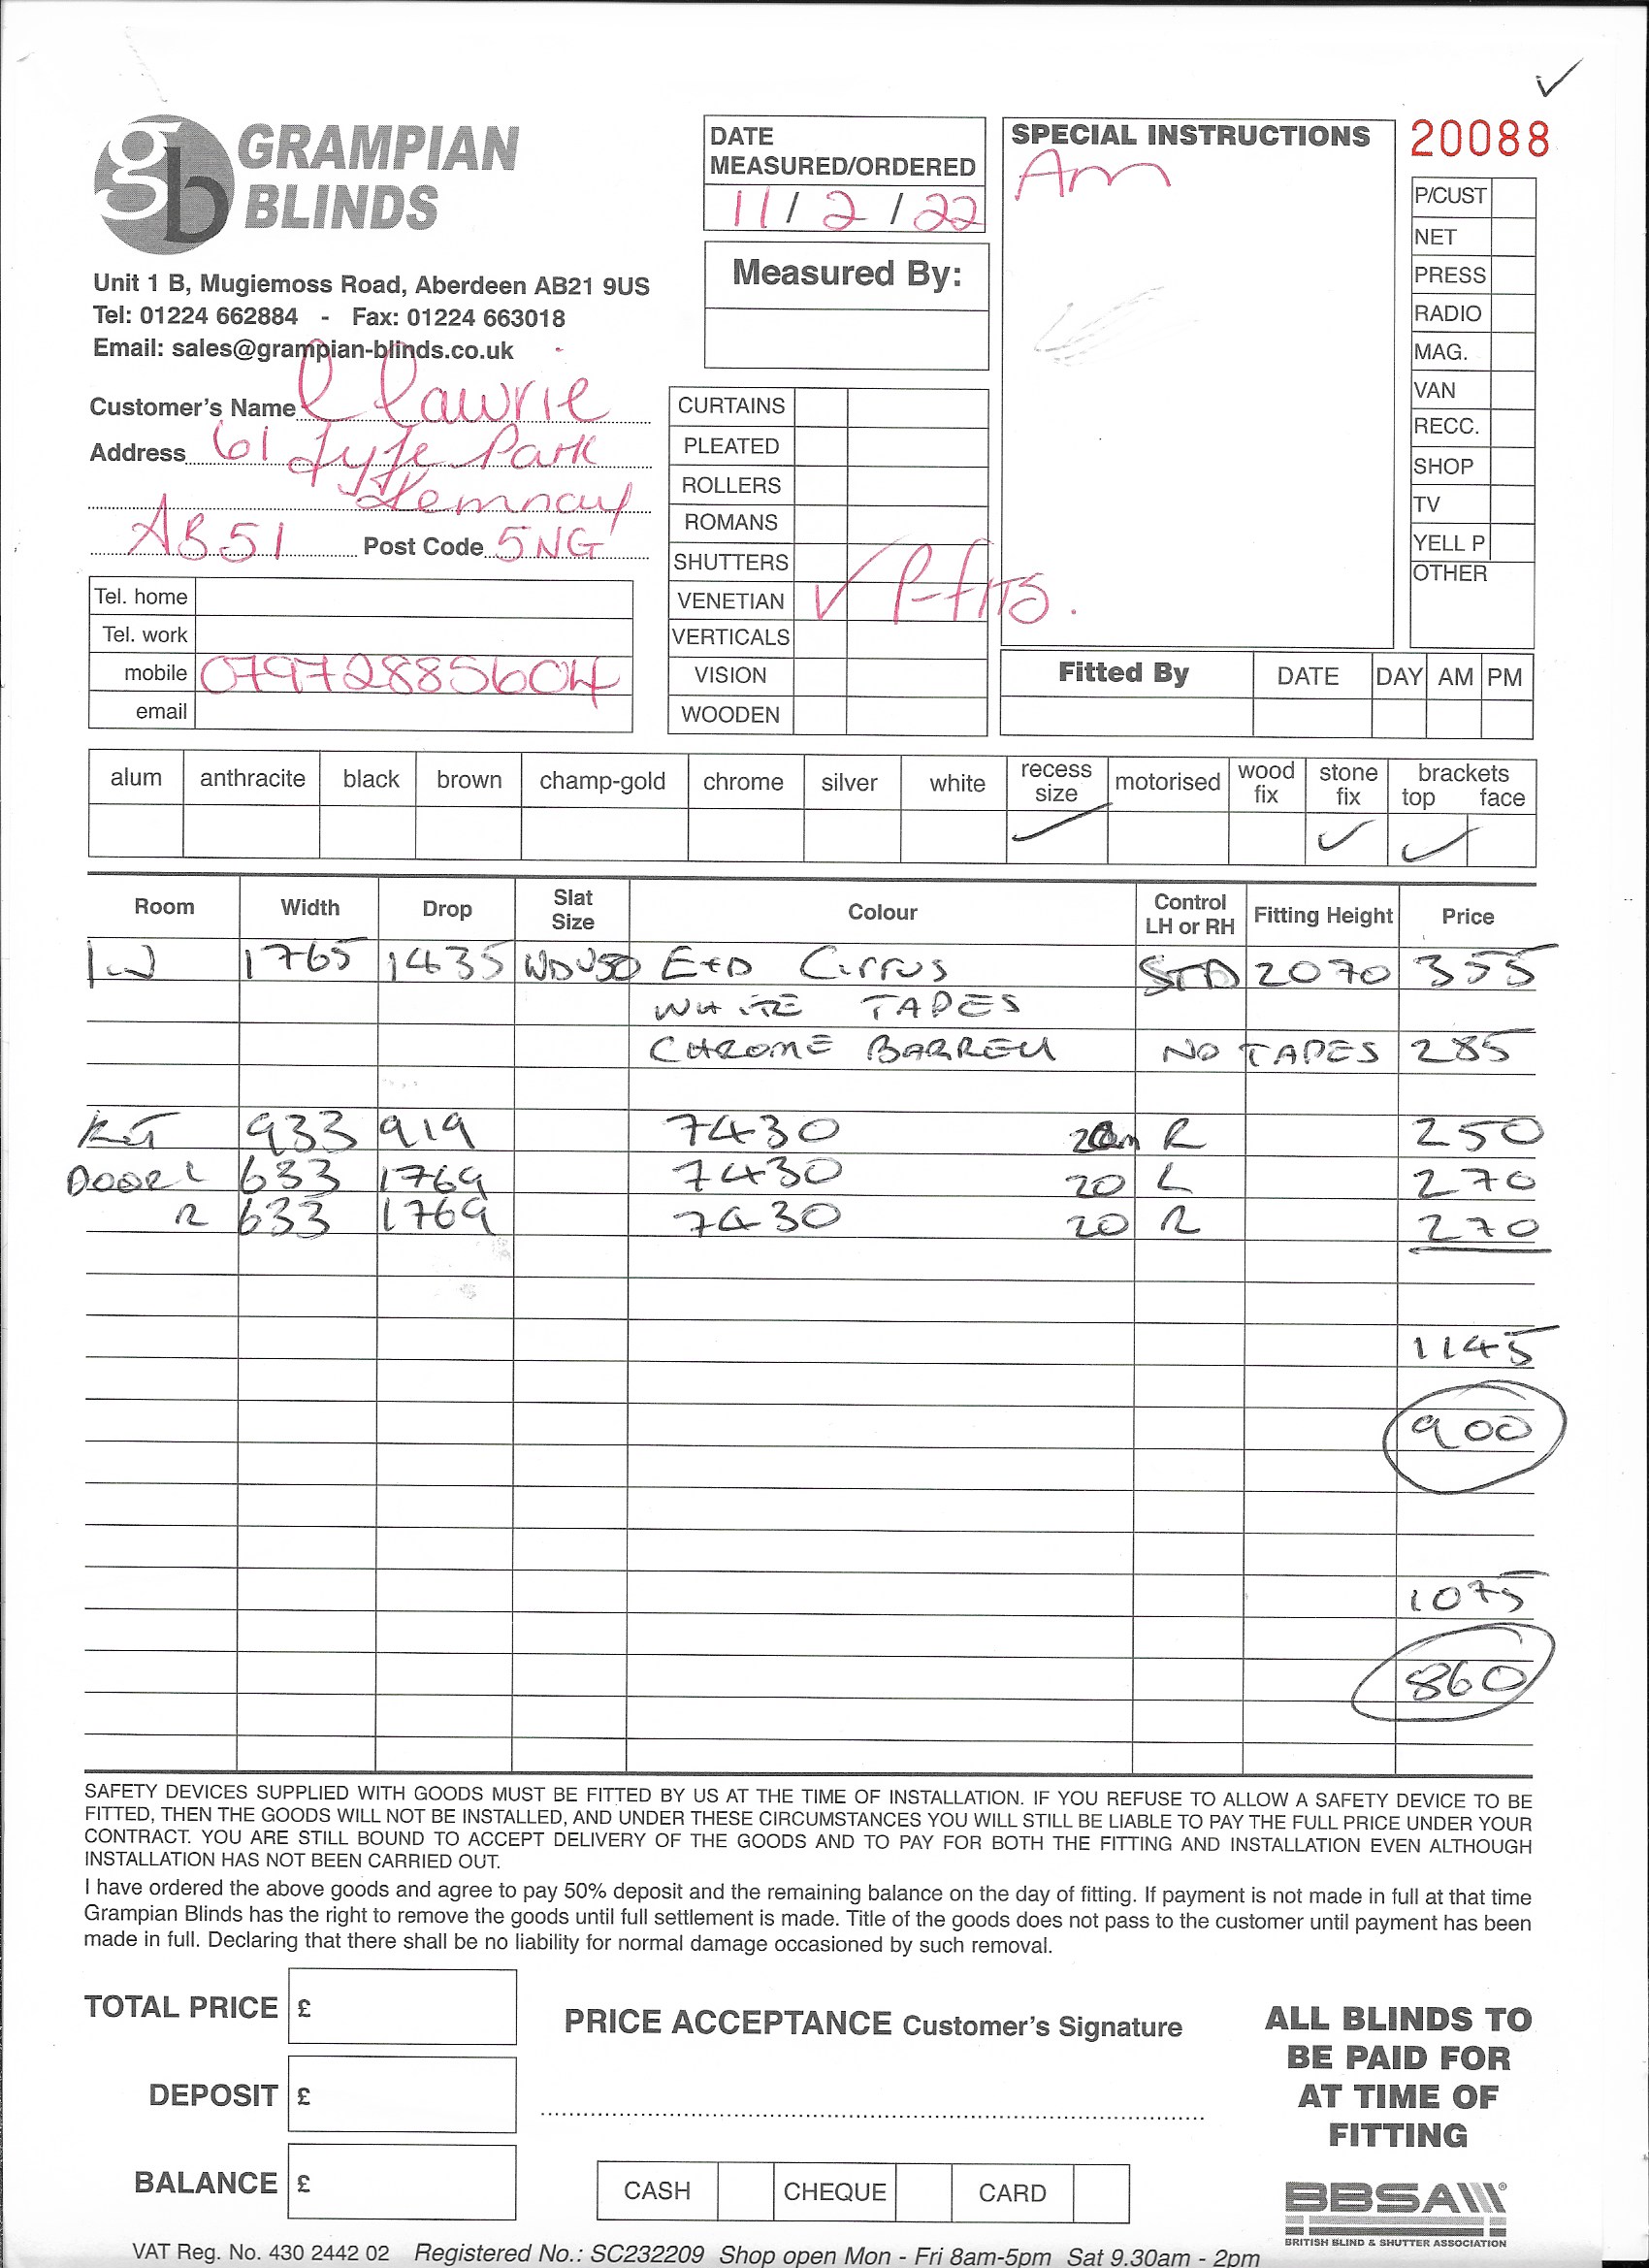 GRAMPIAN
BLINDS
Unit 1 B, Mugiemoss Road, Aberdeen AB21 9US
Tel: 01224 662884 - Fax: 01224 663018
Email: sales@grampian-blinds.co.uk
DATE
MEASURED/ORDERED
11 / 2 / 22
Measured By:
SPECIAL INSTRUCTIONS
Am
20088
P/CUST
NET
PRESS
RADIO
MAG.
VAN
RECC.
SHOP
TV
YELL P
OTHER
Customer's Name Lawrie
Address 61 Fyfe Park
Kemnay
AB51 Post Code 5NG
Tel. home
Tel. work
mobile 07972885604
email
CURTAINS
PLEATED
ROLLERS
ROMANS
SHUTTERS
VENETIAN ✓ P-fits.
VERTICALS
VISION
WOODEN
Fitted By DATE DAY AM PM
alum anthracite black brown champ-gold chrome silver white recess size motorised wood fix stone fix brackets top face
✓ ✓ ✓
Room Width Drop Slat Size Colour Control LH or RH Fitting Height Price
1765 1435 50 Cirrus STD 2070 355
WHITE TAPES
CHROME BARRELL NO TAPES 285
KIT 933 919 7430 R 250
DOOR L 633 1769 7430 20 L 270
R 633 1769 7430 20 R 270
1145
900
1075
860
SAFETY DEVICES SUPPLIED WITH GOODS MUST BE FITTED BY US AT THE TIME OF INSTALLATION. IF YOU REFUSE TO ALLOW A SAFETY DEVICE TO BE
FITTED, THEN THE GOODS WILL NOT BE INSTALLED, AND UNDER THESE CIRCUMSTANCES YOU WILL STILL BE LIABLE TO PAY THE FULL PRICE UNDER YOUR
CONTRACT. YOU ARE STILL BOUND TO ACCEPT DELIVERY OF THE GOODS AND TO PAY FOR BOTH THE FITTING AND INSTALLATION EVEN ALTHOUGH
INSTALLATION HAS NOT BEEN CARRIED OUT.
I have ordered the above goods and agree to pay 50% deposit and the remaining balance on the day of fitting. If payment is not made in full at that time
Grampian Blinds has the right to remove the goods until full settlement is made. Title of the goods does not pass to the customer until payment has been
made in full. Declaring that there shall be no liability for normal damage occasioned by such removal.
TOTAL PRICE £
DEPOSIT £
BALANCE £
PRICE ACCEPTANCE Customer's Signature
CASH CHEQUE CARD
ALL BLINDS TO
BE PAID FOR
AT TIME OF
FITTING
BBSA
BRITISH BLIND & SHUTTER ASSOCIATION
VAT Reg. No. 430 2442 02 Registered No.: SC232209 Shop open Mon - Fri 8am-5pm Sat 9.30am - 2pm